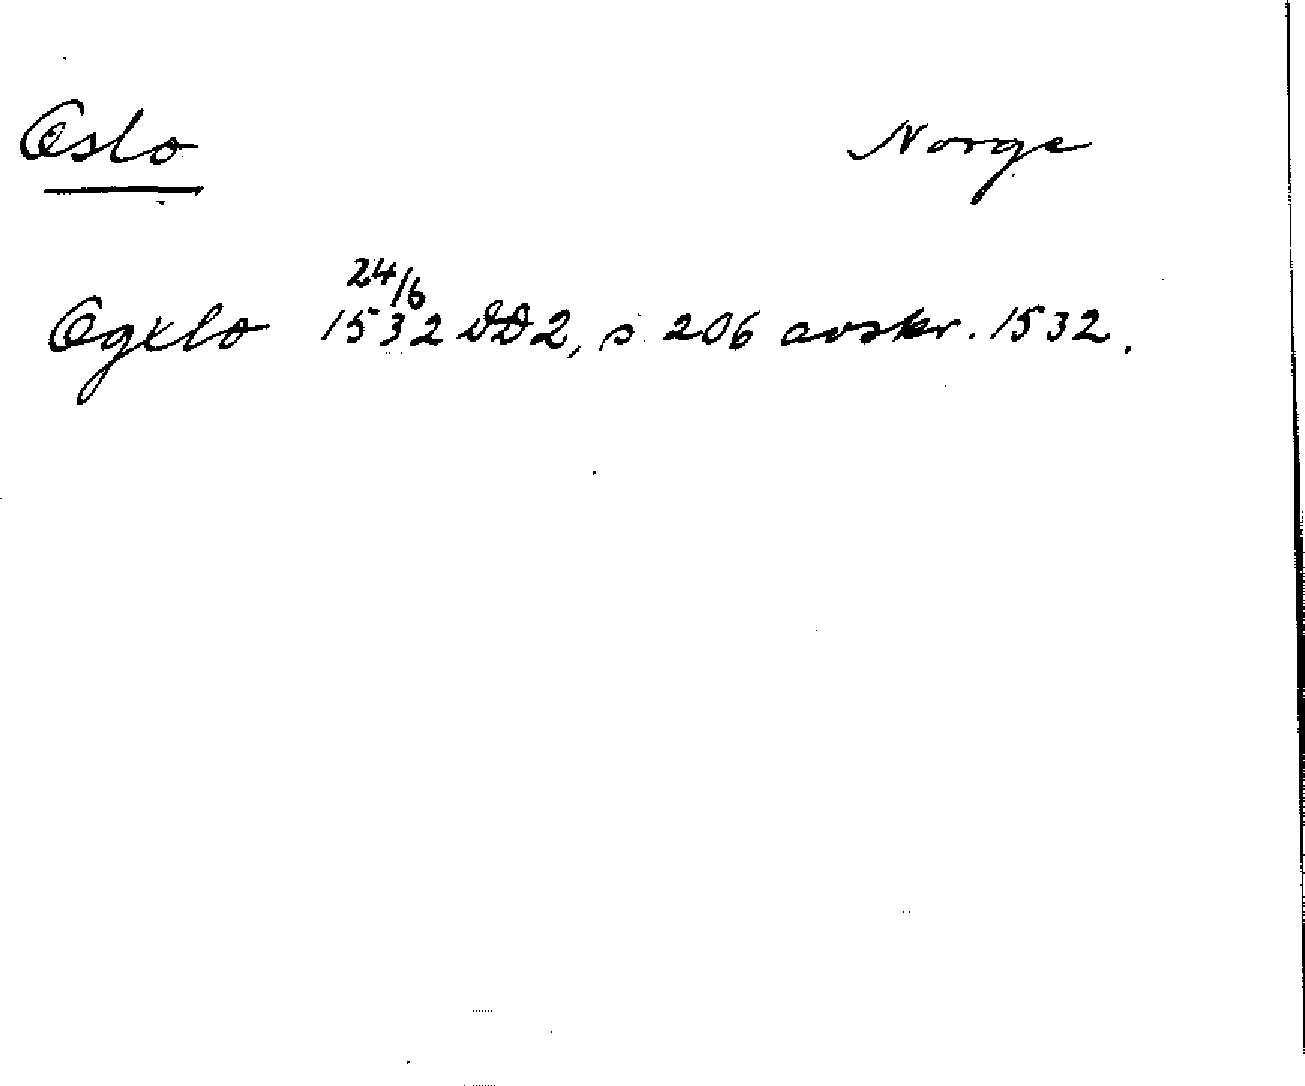 Oslo Norge
24/6
Ogxlo 1532 DD2, s. 206 avskr. 1532.